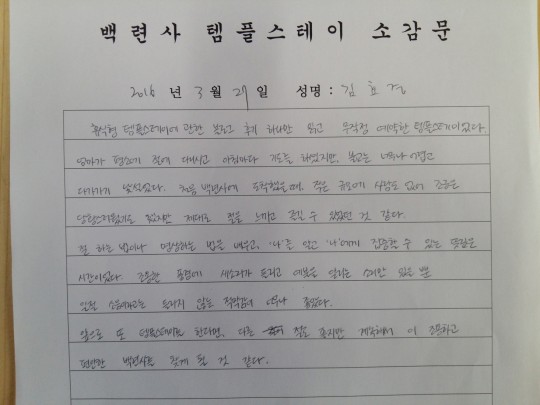 백련사 템플스테이 소감문
2016 년 3 월 27 일 성명 : 김효경
휴식형 템플스테이에 관한 블로그 후기 하나만 읽고 무작정 예약한 템플스테이였다.
엄마가 평소에 절에 다니시고 아침마다 기도를 하셨지만, 불교는 너무나 어렵고
다가가기 낯설었다. 처음 백련사에 도착했을 때, 작은 규모에 사람도 없어 조금은
당황스러웠기도 했지만 제대로 절을 느끼고 즐길 수 있었던 것 같다.
절 하는 법이나 명상하는 법을 배우고, '나'를 알고 '나'에게 집중할 수 있는 뜻깊은
시간이었다. 조용한 풍경에 새소리가 들리고 예불을 알리는 소리만 있을 뿐
일절 소음이라고는 들리지 않는 적막감이 너무나 좋았다.
앞으로 또 템플스테이를 한다면, 다른 절도 좋지만 계속해서 이 조용하고
편안한 백련사를 찾게 될 것 같다.